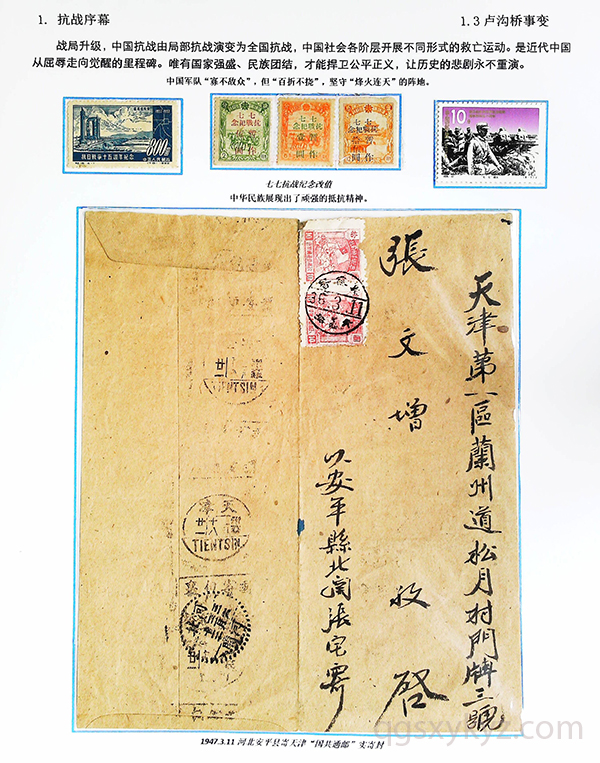 1. 抗战序幕
1.3卢沟桥事变
战局升级，中国抗战由局部抗战演变为全国抗战，中国社会各阶层开展不同形式的救亡运动。是近代中国
从屈辱走向觉醒的里程碑。唯有国家强盛、民族团结，才能捍卫公平正义，让历史的悲剧永不重演。
中国军队“寡不敌众”，但“百折不挠”，坚守“烽火连天”的阵地。
抗日战争十五周年纪念
800
七七
抗战纪念
暂作
圆
七七
抗战纪念
暂作
圆
七七
抗战纪念
暂作
圆
10
七七抗战纪念改值
中华民族展现出了顽强的抵抗精神。
天津第一區蘭州道松月村門牌三號
張文增 收 啓
安平縣北關張宅寄
36.3.11
TIENTSIN
天津
TIENTSIN
1947.3.11 河北安平县寄天津“国共通邮”实寄封
qgsxykyz.com